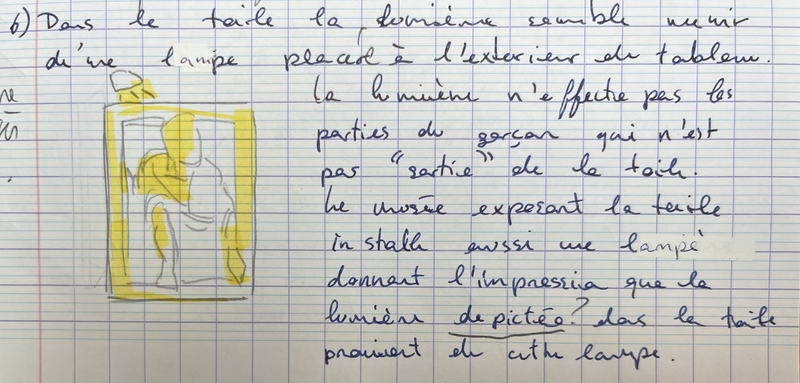 b) Dans le toile la lumière semble venir
d'une lampe placed à l'exterieur du tableau.
la lumière n'effectie pas les
parties du garçon qui n'est
pas "sortie" de la toile.
Le musée exposant la toile
installe aussi une lampe
donnant l'impression que la
lumière depictée? dans la toile
provient de cette lampe.